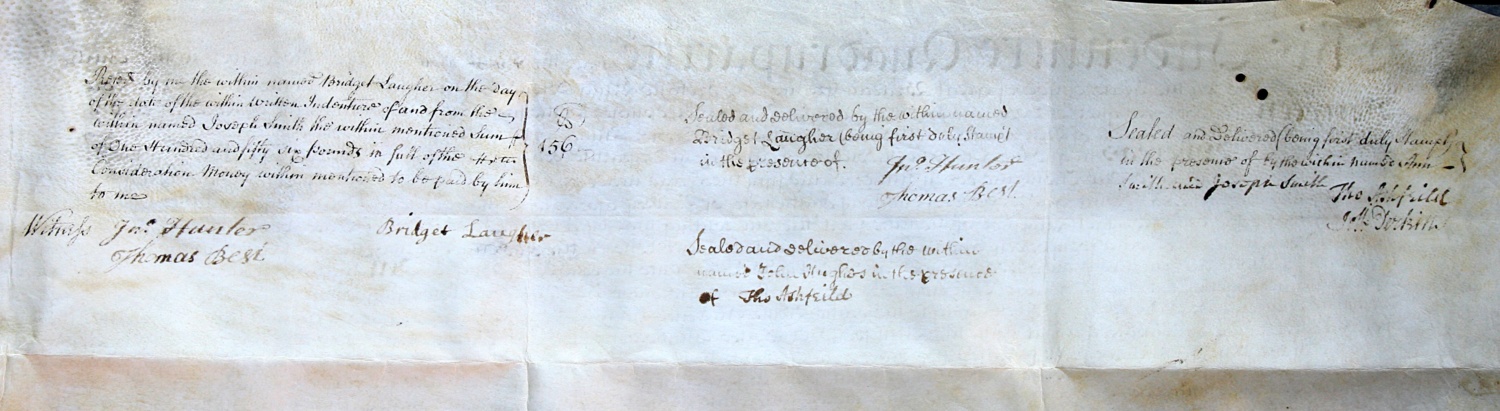 Reced by me the within named Bridget Laugher on the day
of the date of the within written Indenture of and from the
within named Joseph Smith the within mentioned Sum
of One Hundred and fifty six pounds in full of the
Consideration Money within mentioned to be paid by him
to me
£
156
Witness Jno. Hunter
Thomas Best
Bridget Laugher
Sealed and delivered by the within named
Bridget Laugher (being first duly Stampt
in the presence of.
Jno. Hunter
Thomas Best
Sealed and delivered by the within
named John Hughes in the presence
of Tho Ashfeild
Sealed and delivered (being first duly Stampt)
in the presence of by the within named Ann
Smith and Joseph Smith
Tho Ashfeild